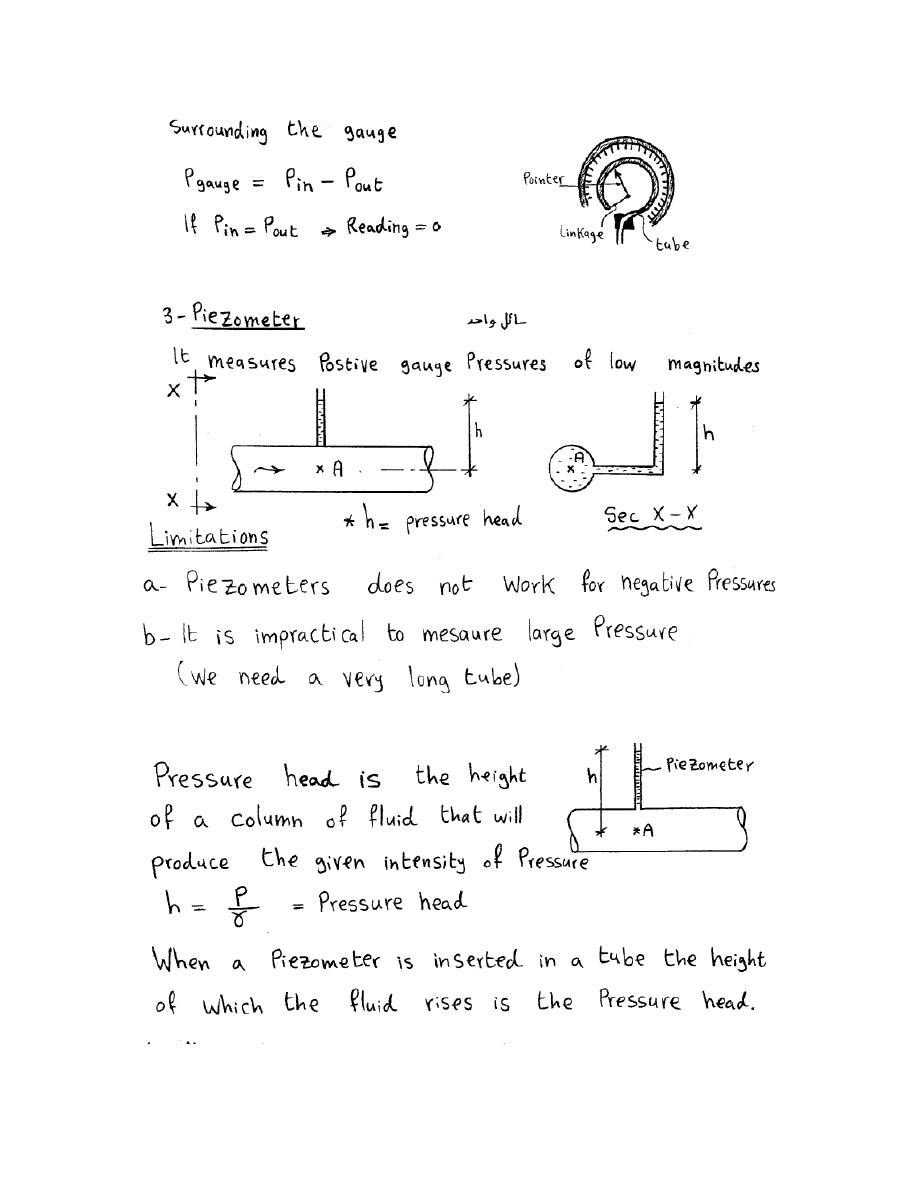 Surrounding the gauge
P gauge = Pin - Pout
If Pin = Pout ⇒ Reading = 0
Pointer
Linkage
tube
3- Piezometer
سائل واحد
It measures Postive gauge Pressures of low magnitudes
X
h
A
h
A
X
* h = pressure head
Sec X-X
Limitations
a- Piezometers does not work for negative Pressures
b- It is impractical to mesaure large Pressure
(we need a very long tube)
Pressure head is the height
of a column of fluid that will
produce the given intensity of Pressure
h
Piezometer
A
h = P/γ = Pressure head
When a Piezometer is inserted in a tube the height
of which the fluid rises is the Pressure head.